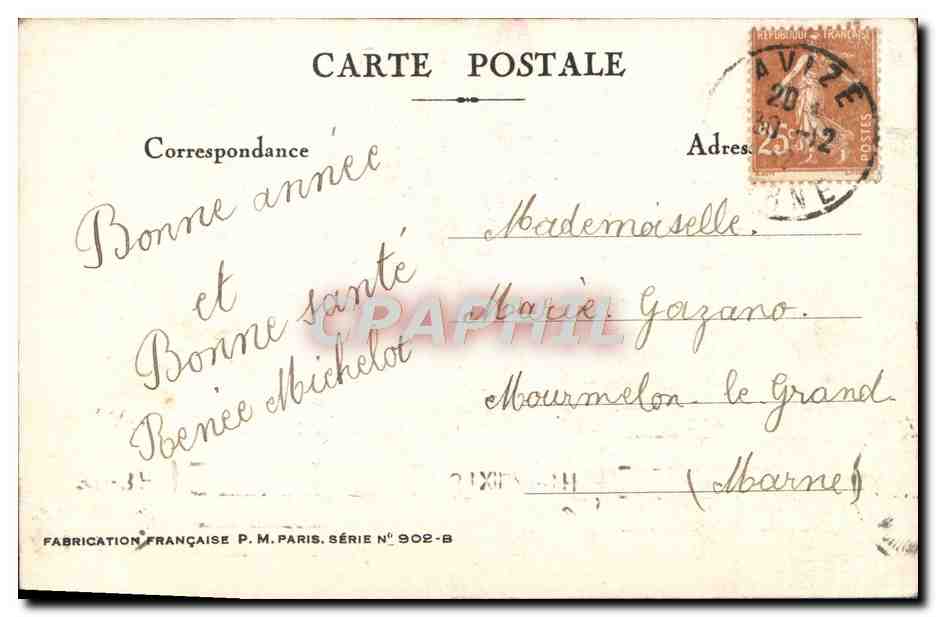 CARTE POSTALE
Correspondance
Adres
Bonne année
et
Bonne santé
Renée Michelot
Mademoiselle.
Marie Gazano.
Mourmelon le Grand.
(Marne)
REPUBLIQUE FRANÇAISE
25c
POSTES
AVIZE
20
30-12
RNE
CPAPHIL
FABRICATION FRANÇAISE P. M. PARIS. SÉRIE Nº 902-B